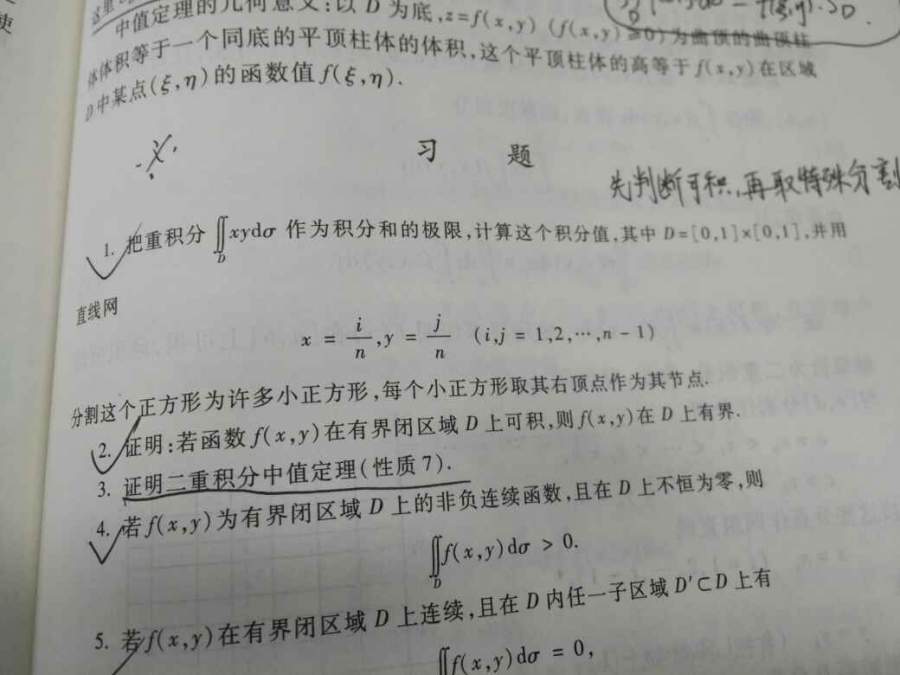 中值定理的几何意义:以 D 为底,z=f(x,y) (f(x,y)≥0)为曲顶的曲顶柱
体体积等于一个同底的平顶柱体的体积,这个平顶柱体的高等于 f(x,y)在区域
D 中某点(ξ,η)的函数值 f(ξ,η).
习 题
先判断可积,再取特殊分割
1. 把重积分 ∬_D xydσ 作为积分和的极限,计算这个积分值,其中 D=[0,1]×[0,1],并用
直线网
x = i/n, y = j/n (i,j = 1,2,⋯,n-1)
分割这个正方形为许多小正方形,每个小正方形取其右顶点作为其节点.
2. 证明:若函数 f(x,y)在有界闭区域 D 上可积,则 f(x,y)在 D 上有界.
3. 证明二重积分中值定理(性质 7).
4. 若 f(x,y)为有界闭区域 D 上的非负连续函数,且在 D 上不恒为零,则
∬_D f(x,y)dσ > 0.
5. 若 f(x,y)在有界闭区域 D 上连续,且在 D 内任一子区域 D′⊂D 上有
∬f(x,y)dσ = 0,